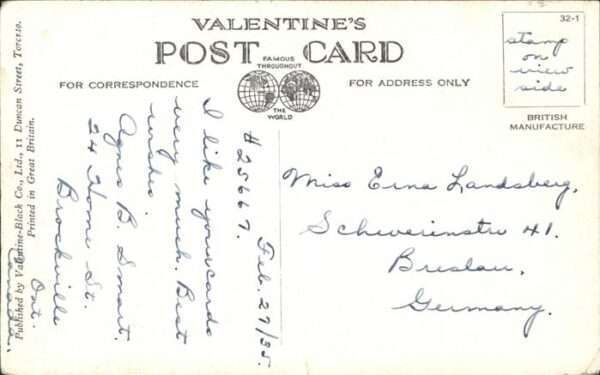 VALENTINE'S
POST CARD
FAMOUS
THROUGHOUT
THE
WORLD
FOR CORRESPONDENCE
FOR ADDRESS ONLY
32-1
stamp
on
view
side
BRITISH
MANUFACTURE
Published by Valentine-Black Co., Ltd., 11 Duncan Street, Toronto.
Printed in Great Britain.
Feb. 27/35.
# 25667.
I like your cards
very much. Best
wishes.
Agnes B. Smart.
24 Home St.
Brockville
Ont.
Canada.
Miss Erna Landsberg,
Schwerinstr 41.
Breslau,
Germany.